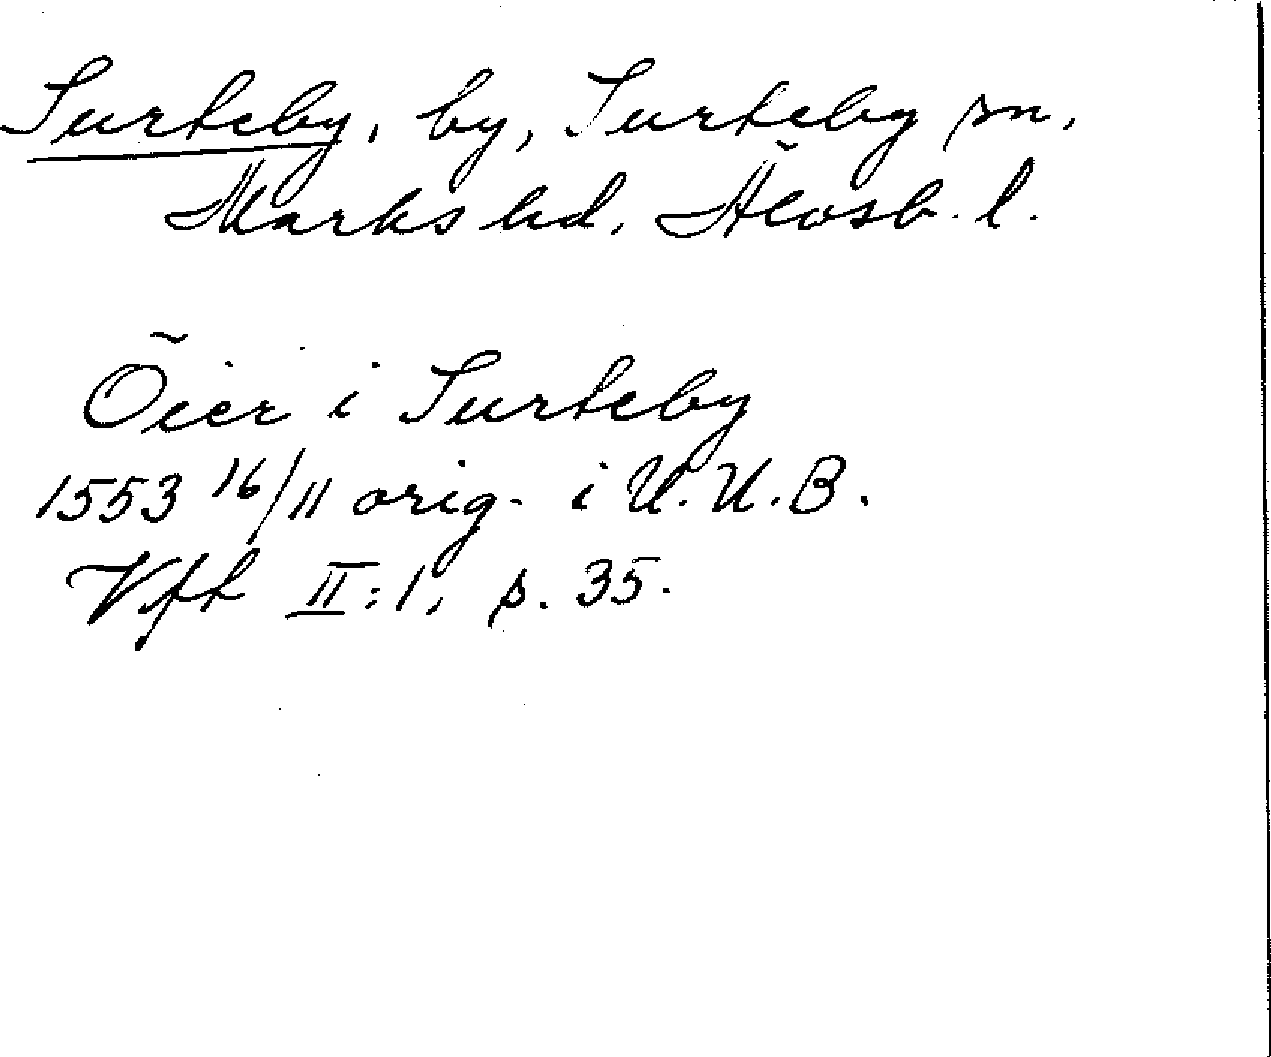 Surteby, by, Surteby sn,
Marks hd. Älvsb. l.
Öier i Surteby
1553 16/11 orig. i U.U.B.
Vft II:1, s. 35.